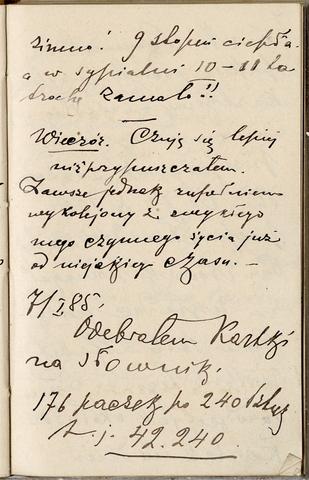 zimno! 9 stopni ciepła
a w sypialni 10-11 to
trochę zamało!!
Wieczór. Czuję się lepiej
niż przypuszczałem.
Zawsze jednak zupełnie
wykolejony z zwykłego
mego czynnego życia już
od niejakiego czasu. —
7/I 85.
Odebrałem Kartki
na słownik.
176 paczek po 240 sztuk
t. j. 42.240.